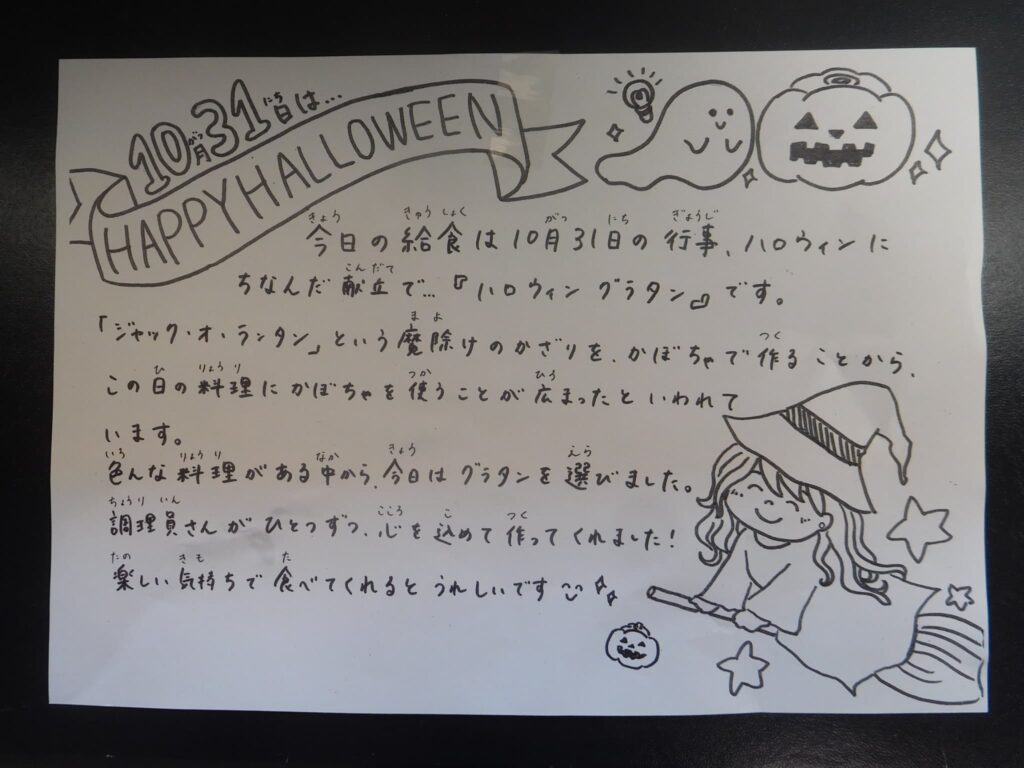 10月31日は…
HAPPY HALLOWEEN
今日の給食は10月31日の行事、ハロウィンに
ちなんだ献立で…『ハロウィン グラタン』です。
「ジャック・オ・ランタン」という魔除けのかざりを、かぼちゃで作ることから、
この日の料理にかぼちゃを使うことが広まったといわれて
います。
色んな料理がある中から、今日はグラタンを選びました。
調理員さんがひとつずつ、心を込めて作ってくれました!
楽しい気持ちで食べてくれるとうれしいです